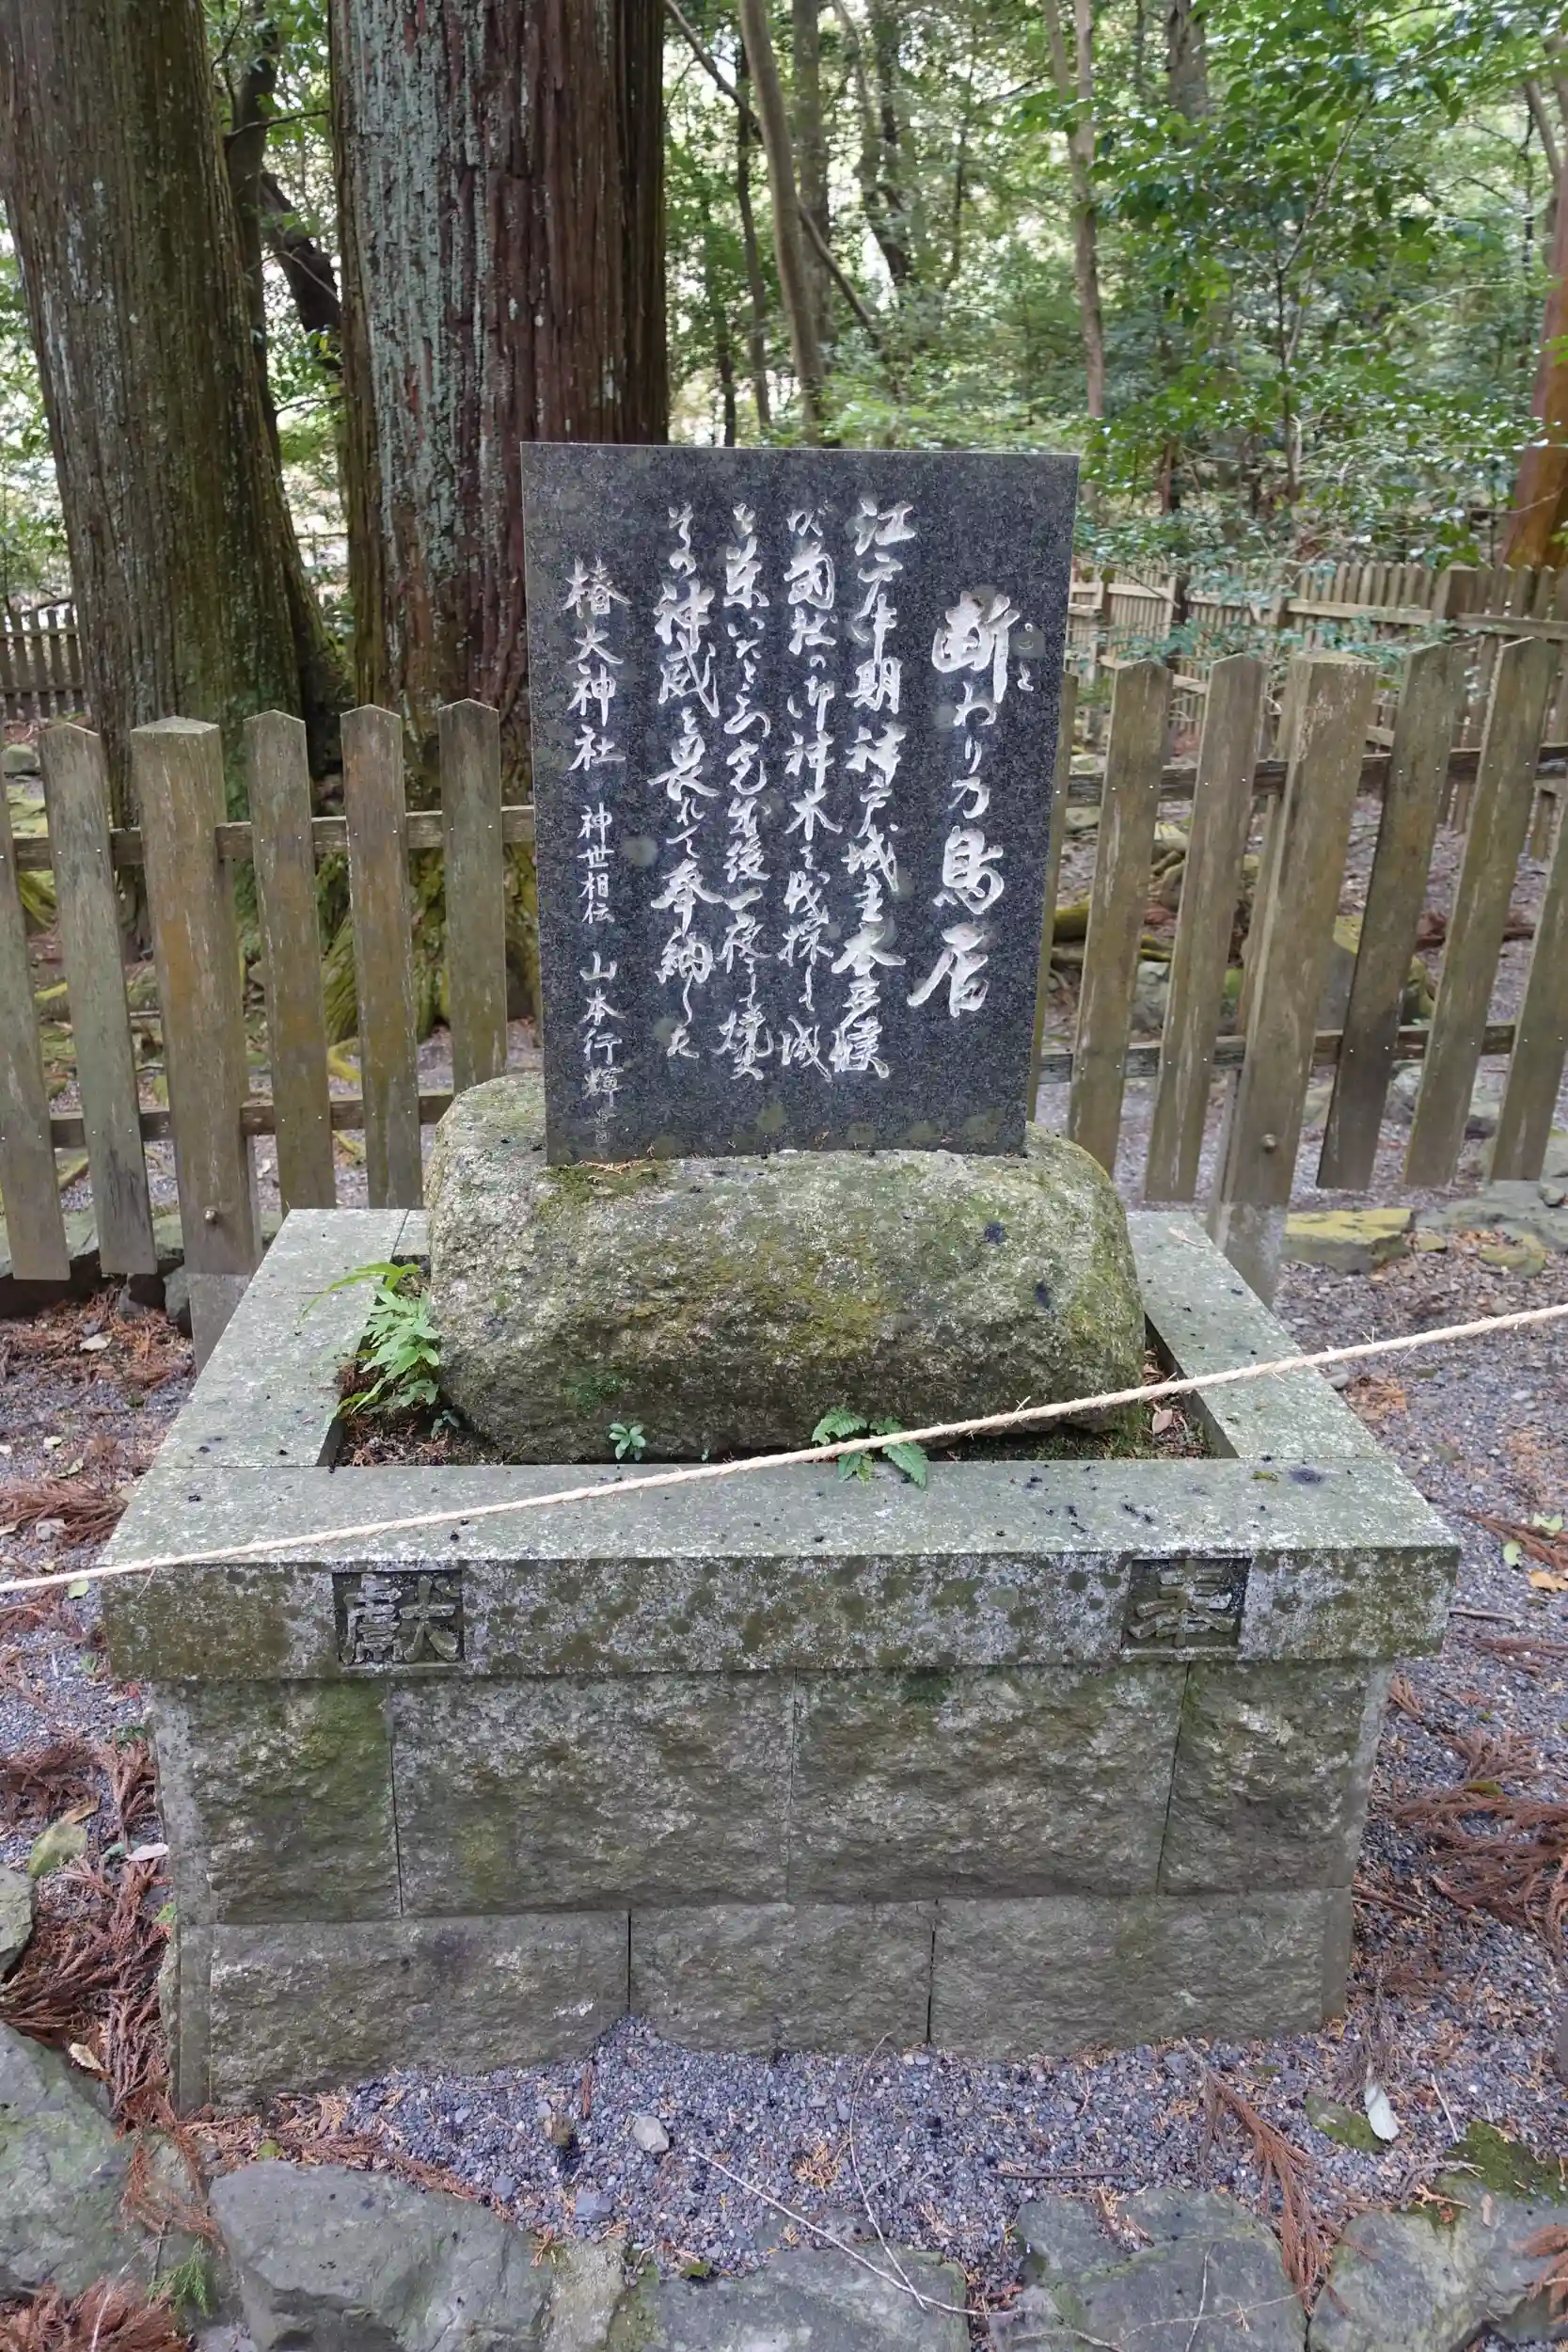 断わり乃鳥居
こと
江戸中期神戸城主本多候
が當社の御神木を伐採し城
を築いたところ完成後一夜に焼失
その神威を畏れて奉納した
椿大神社 神世相伝 山本行輝
奉献